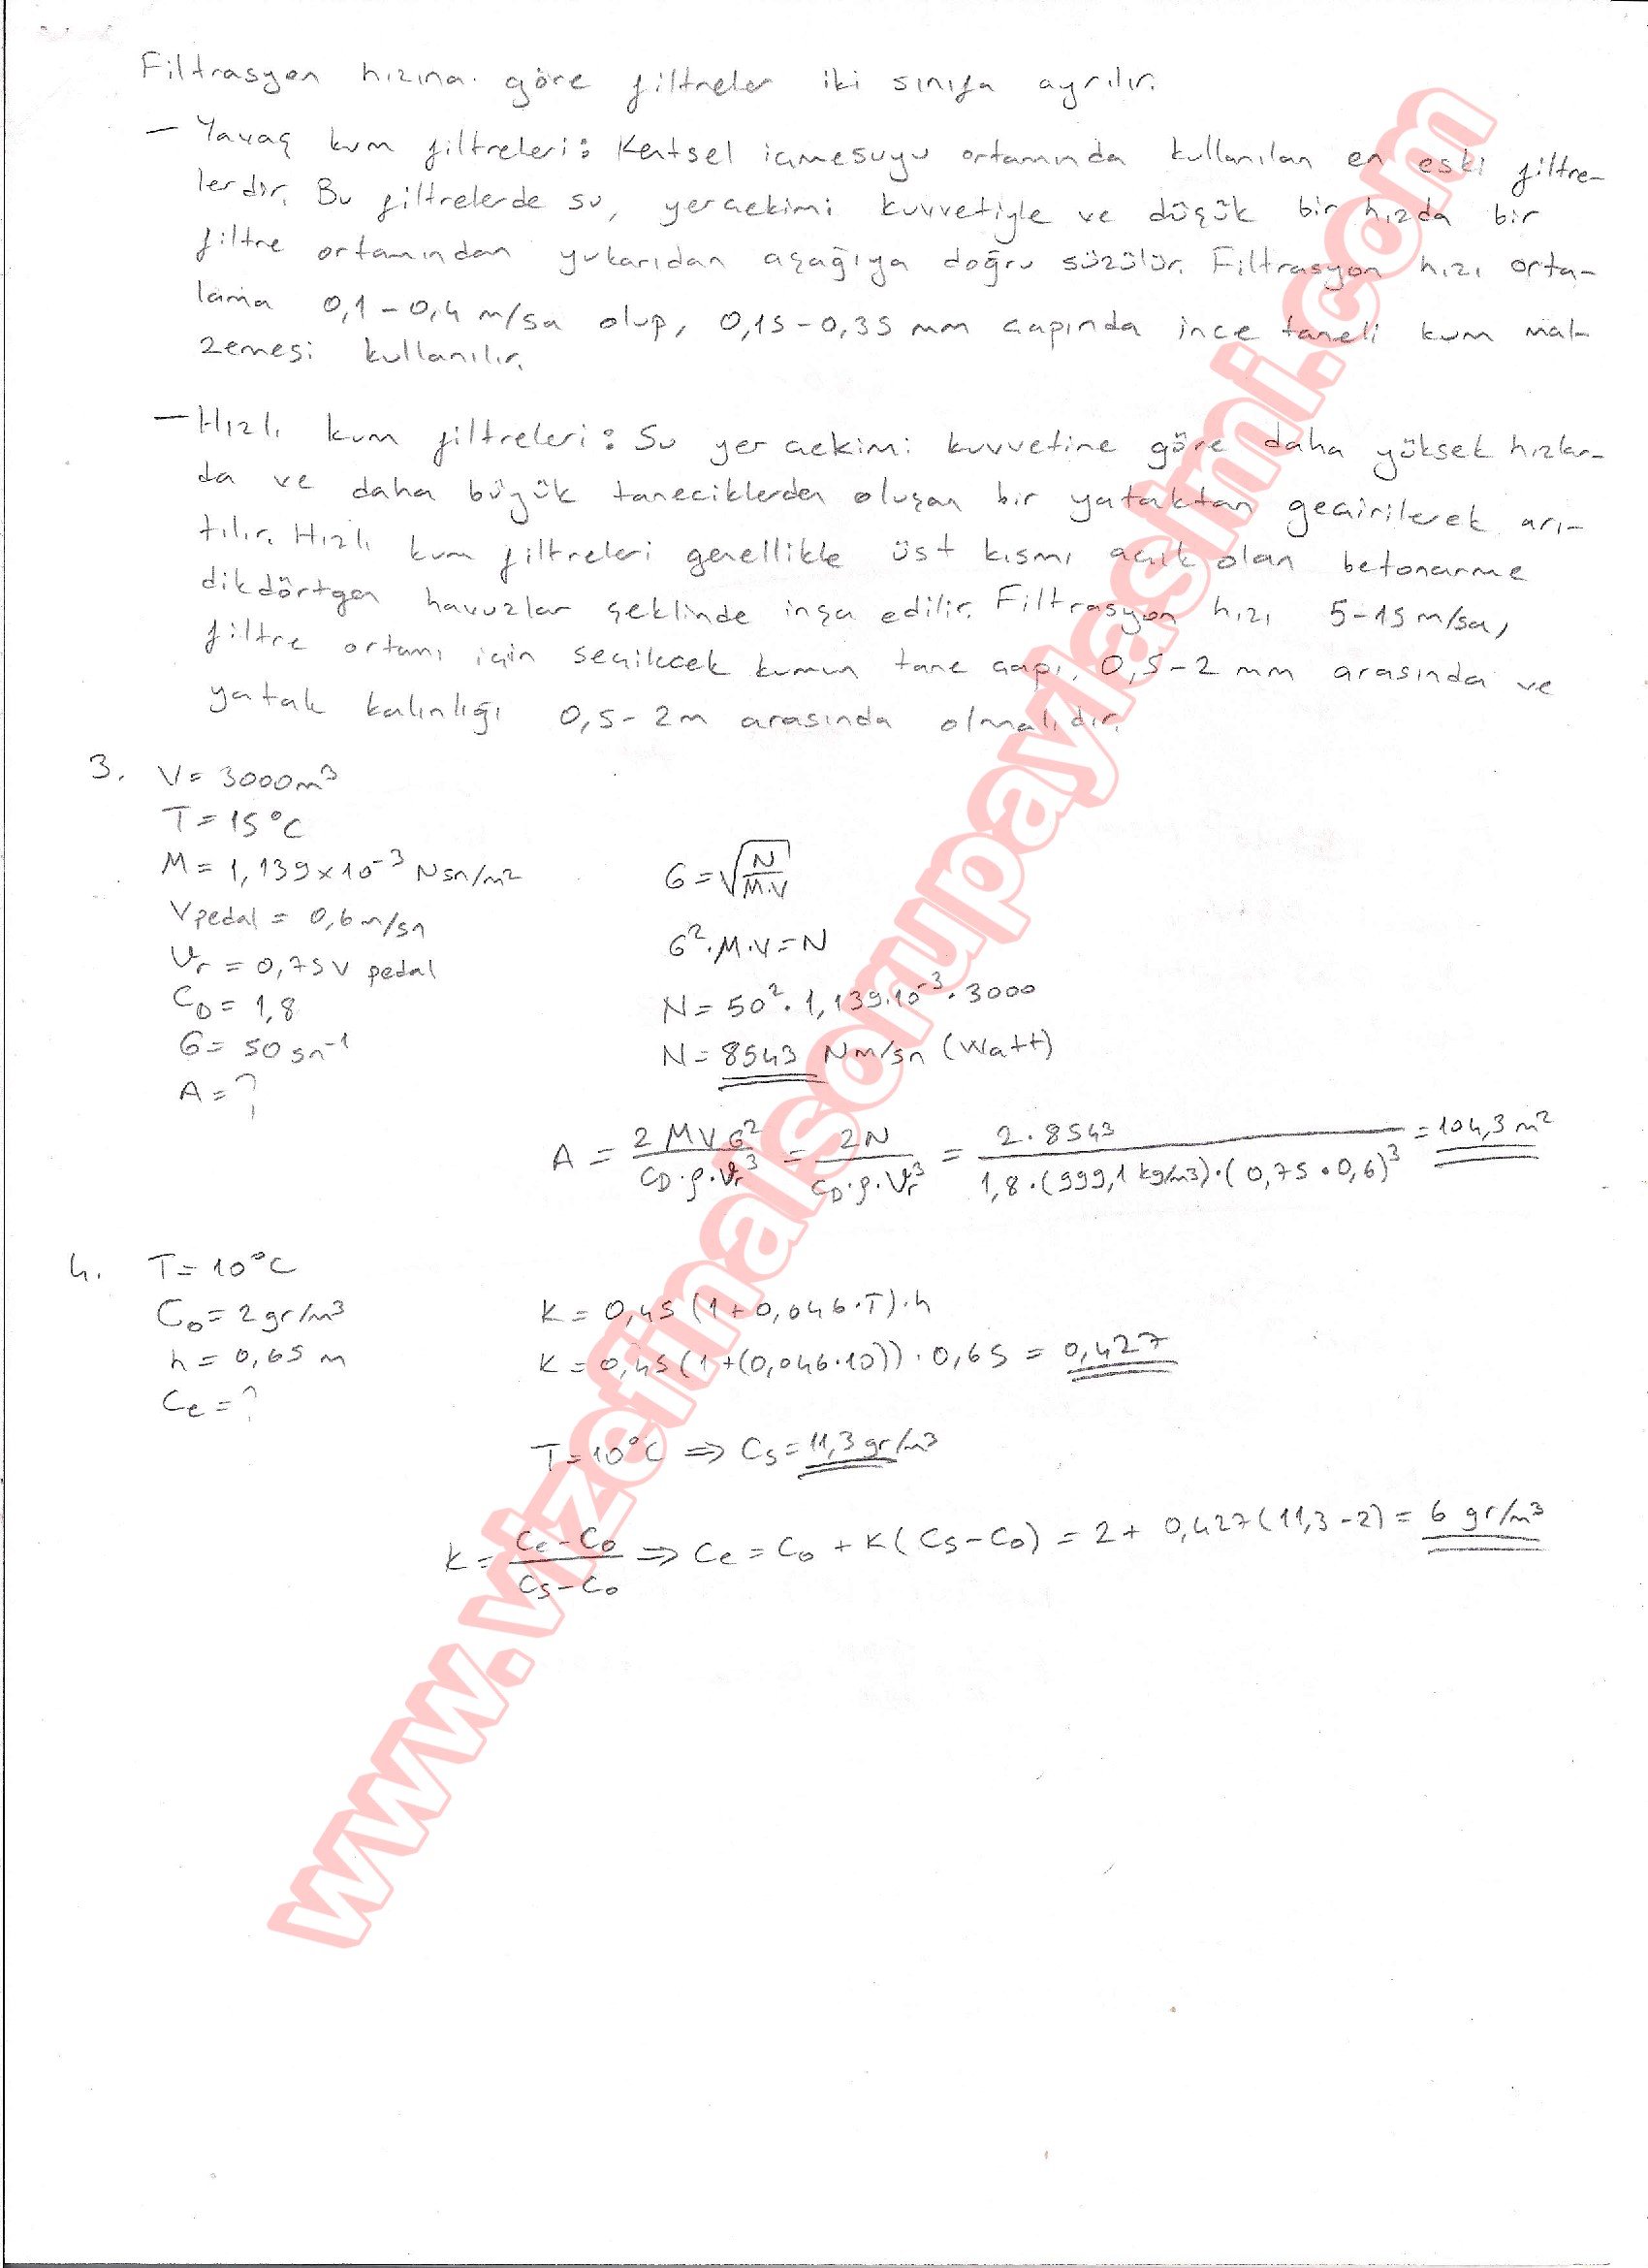 Filtrasyon hızına göre filtreler iki sınıfa ayrılır.
- Yavaş kum filtreleri: Kentsel içmesuyu ortamında kullanılan en eski filtre-
lerdir. Bu filtrelerde su, yerçekimi kuvvetiyle ve düşük bir hızda bir
filtre ortamından yukarıdan aşağıya doğru süzülür. Filtrasyon hızı orta-
lama 0,1-0,4 m/sa olup, 0,15-0,35 mm çapında ince taneli kum mal-
zemesi kullanılır.
- Hızlı kum filtreleri: Su yer çekimi kuvvetine göre daha yüksek hızlar-
da ve daha büyük taneciklerden oluşan bir yataktan geçirilerek arı-
tılır. Hızlı kum filtreleri genellikle üst kısmı açık olan betonarme
dikdörtgen havuzlar şeklinde inşa edilir. Filtrasyon hızı 5-15 m/sa,
filtre ortamı için seçilecek kumun tane çapı, 0,5-2 mm arasında ve
yatak kalınlığı 0,5-2m arasında olmalıdır.
3. V = 3000m³
T = 15°C
M = 1,139×10⁻³ Nsn/m²
Vpedal = 0,6m/sn
Vr = 0,75V pedal
C_D = 1,8
G = 50sn⁻¹
A = ?
G = √(N/M.V)
G².M.V = N
N = 50².1,139.10⁻³.3000
N = 8543 Nm/sn (Watt)
A = 2MVG²/(C_D.ρ.Vr³) = 2N/(C_D.ρ.Vr³) = 2.8543/(1,8.(999,1kg/m3).(0,75.0,6)³) = 104,3m²
4. T = 10°C
C₀ = 2gr/m³
h = 0,65 m
Ce = ?
K = 0,45(1+0,046.T).h
K = 0,45(1+(0,046.10)).0,65 = 0,427
T = 10°C ⇒ Cs = 11,3gr/m³
K = (Ce-C₀)/(Cs-C₀) ⇒ Ce = C₀ + K(Cs-C₀) = 2+ 0,427(11,3-2) = 6 gr/m³
www.vizefinalsorupaylasimi.com